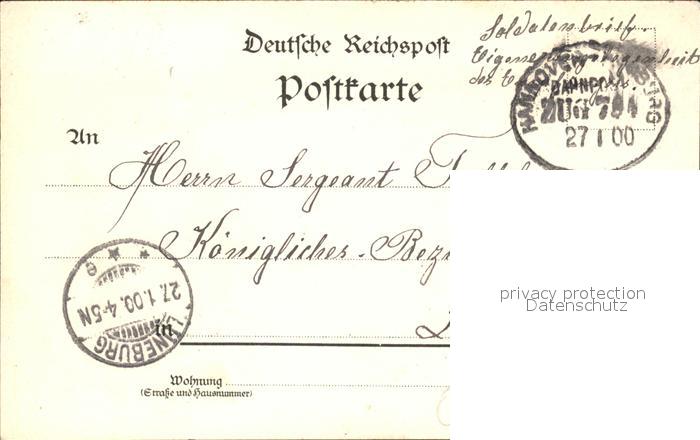 Deutsche Reichspost
Postkarte
Soldatenbrief.
Eigene Angelegenheit
des
HANNOVER
BAHNPOST
ZUG 794
27 1 00
An
Herrn Sergeant
Königliches-Bez
LÜNEBURG
27.1.00.4-5N
e
in
Wohnung
(Straße und Hausnummer)
privacy protection
Datenschutz